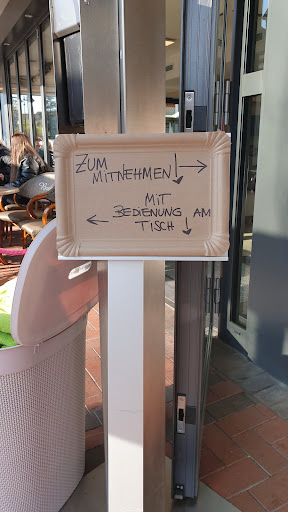 ZUM
MITNEHMEN
MIT
BEDIENUNG AM
TISCH